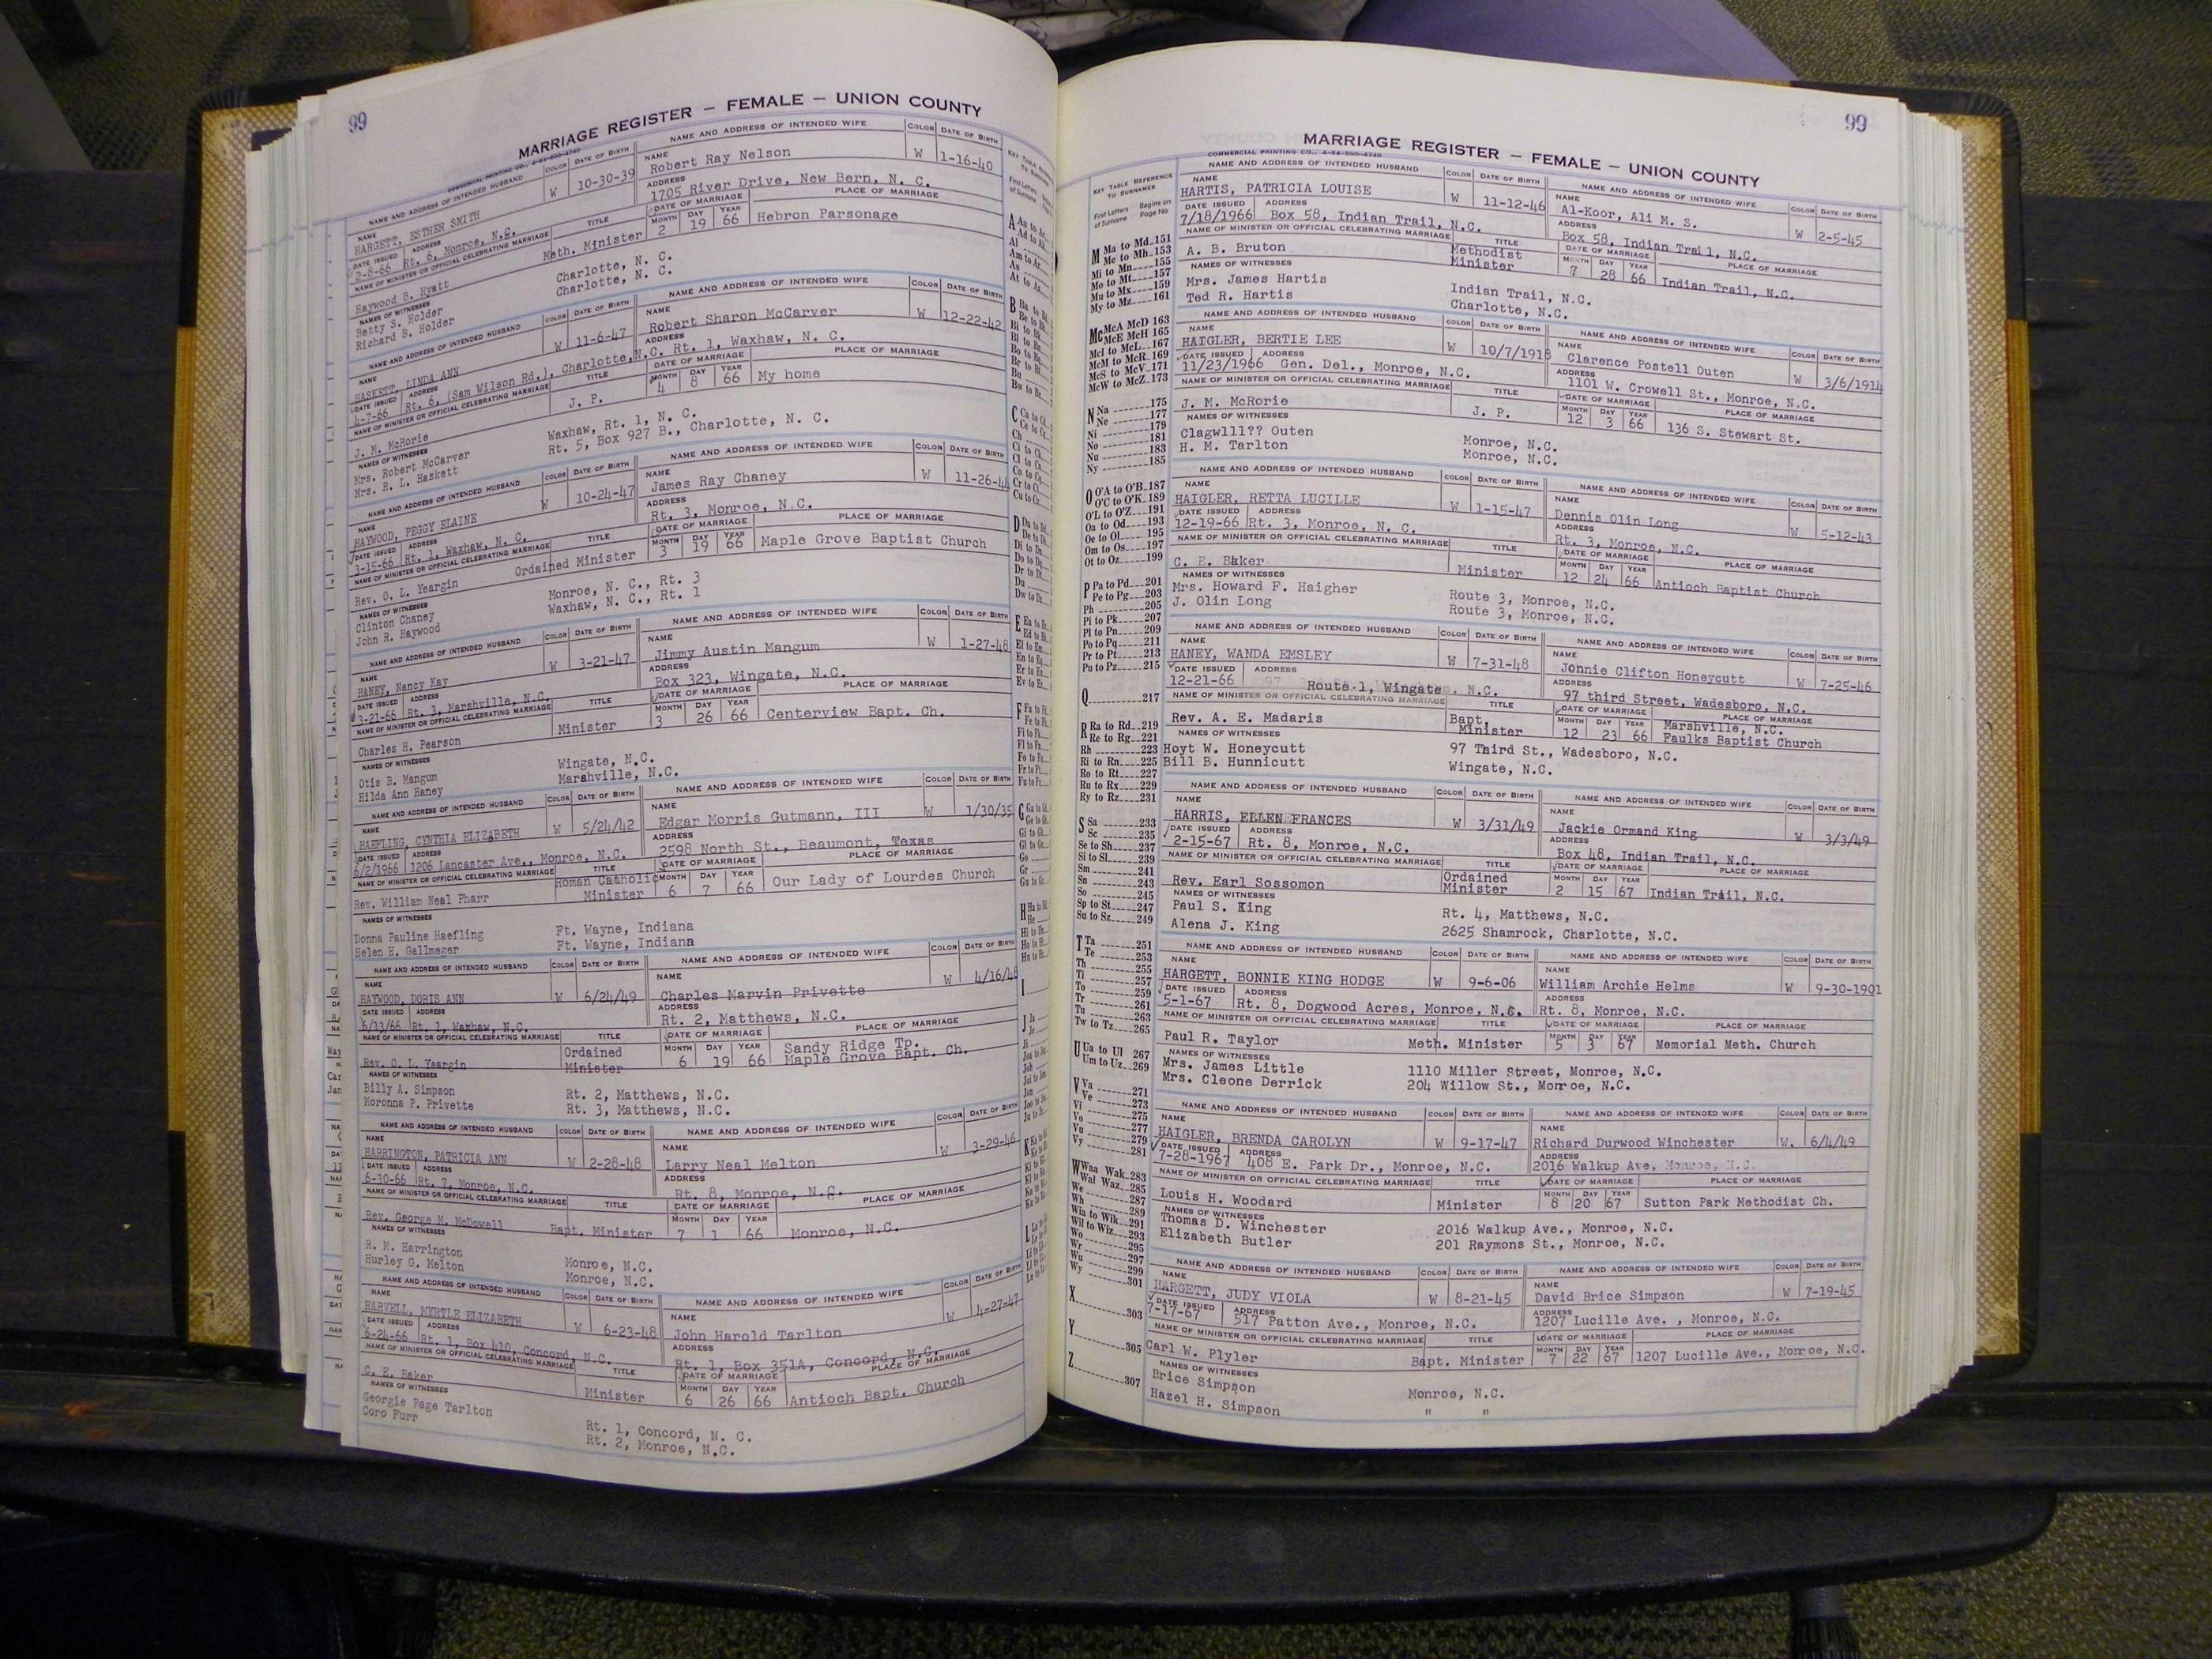 99
MARRIAGE REGISTER — FEMALE — UNION COUNTY
COMMERCIAL PRINTING CO., 4-64-500-4740
NAME AND ADDRESS OF INTENDED HUSBAND COLOR DATE OF BIRTH NAME AND ADDRESS OF INTENDED WIFE COLOR DATE OF BIRTH
NAME HARGETT, ESTHER SMITH W 10-30-39 NAME Robert Ray Nelson W 1-16-40
DATE ISSUED 2-8-66 ADDRESS Rt. 6, Monroe, N.C. ADDRESS 1705 River Drive, New Bern, N. C.
NAME OF MINISTER OR OFFICIAL CELEBRATING MARRIAGE TITLE DATE OF MARRIAGE PLACE OF MARRIAGE
Haywood B. Hyatt Meth. Minister MONTH 2 DAY 19 YEAR 66 Hebron Parsonage
NAMES OF WITNESSES
Betty S. Holder Charlotte, N. C.
Richard B. Holder Charlotte, N. C.
NAME AND ADDRESS OF INTENDED HUSBAND COLOR DATE OF BIRTH NAME AND ADDRESS OF INTENDED WIFE COLOR DATE OF BIRTH
NAME HASKETT, LINDA ANN W 11-6-47 NAME Robert Sharon McCarver W 12-22-42
DATE ISSUED 4-7-66 ADDRESS Rt. 6, (Sam Wilson Rd.), Charlotte,N.C. ADDRESS Rt. 1, Waxhaw, N. C.
NAME OF MINISTER OR OFFICIAL CELEBRATING MARRIAGE TITLE DATE OF MARRIAGE PLACE OF MARRIAGE
J. M. McRorie J. P. MONTH 4 DAY 8 YEAR 66 My home
NAMES OF WITNESSES
Mrs. Robert McCarver Waxhaw, Rt. 1, N. C.
Mrs. R. L. Haskett Rt. 5, Box 927 B., Charlotte, N. C.
NAME AND ADDRESS OF INTENDED HUSBAND COLOR DATE OF BIRTH NAME AND ADDRESS OF INTENDED WIFE COLOR DATE OF BIRTH
NAME HAYWOOD, PEGGY ELAINE W 10-24-47 NAME James Ray Chaney W 11-26-44
DATE ISSUED 3-15-66 ADDRESS Rt. 1, Waxhaw, N. C. ADDRESS Rt. 3, Monroe, N.C.
NAME OF MINISTER OR OFFICIAL CELEBRATING MARRIAGE TITLE DATE OF MARRIAGE PLACE OF MARRIAGE
Rev. O. L. Yeargin Ordained Minister MONTH 3 DAY 19 YEAR 66 Maple Grove Baptist Church
NAMES OF WITNESSES
Clinton Chaney Monroe, N. C., Rt. 3
John R. Haywood Waxhaw, N. C., Rt. 1
NAME AND ADDRESS OF INTENDED HUSBAND COLOR DATE OF BIRTH NAME AND ADDRESS OF INTENDED WIFE COLOR DATE OF BIRTH
NAME HANEY, Nancy Kay W 3-21-47 NAME Jimmy Austin Mangum W 1-27-48
DATE ISSUED 3-21-66 ADDRESS Rt. 3, Marshville, N.C. ADDRESS Box 323, Wingate, N.C.
NAME OF MINISTER OR OFFICIAL CELEBRATING MARRIAGE TITLE DATE OF MARRIAGE PLACE OF MARRIAGE
Charles H. Pearson Minister MONTH 3 DAY 26 YEAR 66 Centerview Bapt. Ch.
NAMES OF WITNESSES
Otis B. Mangum Wingate, N.C.
Hilda Ann Haney Marshville, N.C.
NAME AND ADDRESS OF INTENDED HUSBAND COLOR DATE OF BIRTH NAME AND ADDRESS OF INTENDED WIFE COLOR DATE OF BIRTH
NAME HAEFLING, CYNTHIA ELIZABETH W 5/24/42 NAME Edgar Morris Gutmann, III W 1/30/35
DATE ISSUED 6/2/1966 ADDRESS 1206 Lancaster Ave., Monroe, N.C. ADDRESS 2598 North St., Beaumont, Texas
NAME OF MINISTER OR OFFICIAL CELEBRATING MARRIAGE TITLE DATE OF MARRIAGE PLACE OF MARRIAGE
Rev. William Neal Pharr Roman Catholic Minister MONTH 6 DAY 7 YEAR 66 Our Lady of Lourdes Church
NAMES OF WITNESSES
Donna Pauline Haefling Ft. Wayne, Indiana
Helen H. Gallmeger Ft. Wayne, Indiana
NAME AND ADDRESS OF INTENDED HUSBAND COLOR DATE OF BIRTH NAME AND ADDRESS OF INTENDED WIFE COLOR DATE OF BIRTH
NAME HAYWOOD, DORIS ANN W 6/24/49 NAME Charles Marvin Privette W 4/16/48
DATE ISSUED 6/13/66 ADDRESS Rt. 1, Waxhaw, N.C. ADDRESS Rt. 2, Matthews, N.C.
NAME OF MINISTER OR OFFICIAL CELEBRATING MARRIAGE TITLE DATE OF MARRIAGE PLACE OF MARRIAGE
Rev. O. L. Yeargin Ordained Minister MONTH 6 DAY 19 YEAR 66 Sandy Ridge Tp. Maple Grove Bapt. Ch.
NAMES OF WITNESSES
Billy A. Simpson Rt. 2, Matthews, N.C.
Moronna P. Privette Rt. 3, Matthews, N.C.
NAME AND ADDRESS OF INTENDED HUSBAND COLOR DATE OF BIRTH NAME AND ADDRESS OF INTENDED WIFE COLOR DATE OF BIRTH
NAME HARRINGTON, PATRICIA ANN W 2-28-48 NAME Larry Neal Melton W 3-29-46
DATE ISSUED 6-30-66 ADDRESS Rt. 7, Monroe, N.C. ADDRESS Rt. 8, Monroe, N.C.
NAME OF MINISTER OR OFFICIAL CELEBRATING MARRIAGE TITLE DATE OF MARRIAGE PLACE OF MARRIAGE
Rev. George M. McDowell Bapt. Minister MONTH 7 DAY 1 YEAR 66 Monroe, N.C.
NAMES OF WITNESSES
R. M. Harrington Monroe, N.C.
Hurley G. Melton Monroe, N.C.
NAME AND ADDRESS OF INTENDED HUSBAND COLOR DATE OF BIRTH NAME AND ADDRESS OF INTENDED WIFE COLOR DATE OF BIRTH
NAME HARVELL, MYRTLE ELIZABETH W 6-23-48 NAME John Harold Tarlton W 4-27-47
DATE ISSUED 6-24-66 ADDRESS Rt. 1, Box 410, Concord, N.C. ADDRESS Rt. 1, Box 351A, Concord, N.C.
NAME OF MINISTER OR OFFICIAL CELEBRATING MARRIAGE TITLE DATE OF MARRIAGE PLACE OF MARRIAGE
C. E. Baker Minister MONTH 6 DAY 26 YEAR 66 Antioch Bapt. Church
NAMES OF WITNESSES
Georgie Page Tarlton Rt. 1, Concord, N. C.
Coro Furr Rt. 2, Monroe, N.C.
99
MARRIAGE REGISTER — FEMALE — UNION COUNTY
COMMERCIAL PRINTING CO., 4-64-500-4740
KEY TABLE REFERENCE TO SURNAMES
First Letters of Surname Begins on Page No
M Ma to Md 151
Me to Mh 153
Mi to Mn 155
Mo to Mt 157
Mu to Mx 159
My to Mz 161
Mc McA McD 163
McE McH 165
McI to McL 167
McM to McR 169
McS to McV 171
McW to McZ 173
N Na 175
Ne 177
Ni 179
No 181
Nu 183
Ny 185
O O'A to O'B 187
O'C to O'K 189
O'L to O'Z 191
Oa to Od 193
Oe to Ol 195
Om to Os 197
Ot to Oz 199
P Pa to Pd 201
Pe to Pg 203
Ph 205
Pi to Pk 207
Pl to Pn 209
Po to Pq 211
Pr to Pt 213
Pu to Pz 215
Q 217
R Ra to Rd 219
Re to Rg 221
Rh 223
Ri to Rn 225
Ro to Rt 227
Ru to Rx 229
Ry to Rz 231
S Sa 233
Sc 235
Se to Sh 237
Si to Sl 239
Sm 241
Sn 243
So 245
Sp to St 247
Su to Sz 249
T Ta 251
Te 253
Th 255
Ti 257
To 259
Tr 261
Tu 263
Tw to Tz 265
U Ua to Ul 267
Um to Uz 269
V Va 271
Ve 273
Vi 275
Vo 277
Vu 279
Vy 281
W Waa Wak 283
Wal Waz 285
We 287
Wh 289
Wia to Wik 291
Wil to Wiz 293
Wo 295
Wr 297
Wu 299
Wy 301
X 303
Y 305
Z 307
NAME AND ADDRESS OF INTENDED HUSBAND COLOR DATE OF BIRTH NAME AND ADDRESS OF INTENDED WIFE COLOR DATE OF BIRTH
NAME HARTIS, PATRICIA LOUISE W 11-12-46 NAME Al-Koor, Ali M. S. W 2-5-45
DATE ISSUED 7/18/1966 ADDRESS Box 58, Indian Trail, N.C. ADDRESS Box 58, Indian Trail, N.C.
NAME OF MINISTER OR OFFICIAL CELEBRATING MARRIAGE TITLE DATE OF MARRIAGE PLACE OF MARRIAGE
A. B. Bruton Methodist Minister MONTH 7 DAY 28 YEAR 66 Indian Trail, N.C.
NAMES OF WITNESSES
Mrs. James Hartis Indian Trail, N.C.
Ted R. Hartis Charlotte, N.C.
NAME AND ADDRESS OF INTENDED HUSBAND COLOR DATE OF BIRTH NAME AND ADDRESS OF INTENDED WIFE COLOR DATE OF BIRTH
NAME HAIGLER, BERTIE LEE W 10/7/1918 NAME Clarence Postell Outen W 3/6/1914
DATE ISSUED 11/23/1966 ADDRESS Gen. Del., Monroe, N.C. ADDRESS 1101 W. Crowell St., Monroe, N.C.
NAME OF MINISTER OR OFFICIAL CELEBRATING MARRIAGE TITLE DATE OF MARRIAGE PLACE OF MARRIAGE
J. M. McRorie J. P. MONTH 12 DAY 3 YEAR 66 136 S. Stewart St.
NAMES OF WITNESSES
Clagwlll?? Outen Monroe, N.C.
H. M. Tarlton Monroe, N.C.
NAME AND ADDRESS OF INTENDED HUSBAND COLOR DATE OF BIRTH NAME AND ADDRESS OF INTENDED WIFE COLOR DATE OF BIRTH
NAME HAIGLER, RETTA LUCILLE W 1-15-47 NAME Dennis Olin Long W 5-12-43
DATE ISSUED 12-19-66 ADDRESS Rt. 3, Monroe, N. C. ADDRESS Rt. 3, Monroe, N.C.
NAME OF MINISTER OR OFFICIAL CELEBRATING MARRIAGE TITLE DATE OF MARRIAGE PLACE OF MARRIAGE
C. E. Baker Minister MONTH 12 DAY 24 YEAR 66 Antioch Baptist Church
NAMES OF WITNESSES
Mrs. Howard F. Haigher Route 3, Monroe, N.C.
J. Olin Long Route 3, Monroe, N.C.
NAME AND ADDRESS OF INTENDED HUSBAND COLOR DATE OF BIRTH NAME AND ADDRESS OF INTENDED WIFE COLOR DATE OF BIRTH
NAME HANEY, WANDA EMSLEY W 7-31-48 NAME Jonnie Clifton Honeycutt W 7-25-46
DATE ISSUED 12-21-66 ADDRESS Route 1, Wingate, N.C. ADDRESS 97 third Street, Wadesboro, N.C.
NAME OF MINISTER OR OFFICIAL CELEBRATING MARRIAGE TITLE DATE OF MARRIAGE PLACE OF MARRIAGE
Rev. A. E. Madaris Bapt. Minister MONTH 12 DAY 23 YEAR 66 Marshville, N.C. Faulks Baptist Church
NAMES OF WITNESSES
Hoyt W. Honeycutt 97 Third St., Wadesboro, N.C.
Bill B. Hunnicutt Wingate, N.C.
NAME AND ADDRESS OF INTENDED HUSBAND COLOR DATE OF BIRTH NAME AND ADDRESS OF INTENDED WIFE COLOR DATE OF BIRTH
NAME HARRIS, ELLEN FRANCES W 3/31/49 NAME Jackie Ormand King W 3/3/49
DATE ISSUED 2-15-67 ADDRESS Rt. 8, Monroe, N.C. ADDRESS Box 48, Indian Trail, N.C.
NAME OF MINISTER OR OFFICIAL CELEBRATING MARRIAGE TITLE DATE OF MARRIAGE PLACE OF MARRIAGE
Rev. Earl Sossomon Ordained Minister MONTH 2 DAY 15 YEAR 67 Indian Trail, N.C.
NAMES OF WITNESSES
Paul S. King Rt. 4, Matthews, N.C.
Alena J. King 2625 Shamrock, Charlotte, N.C.
NAME AND ADDRESS OF INTENDED HUSBAND COLOR DATE OF BIRTH NAME AND ADDRESS OF INTENDED WIFE COLOR DATE OF BIRTH
NAME HARGETT, BONNIE KING HODGE W 9-6-06 NAME William Archie Helms W 9-30-1901
DATE ISSUED 5-1-67 ADDRESS Rt. 8, Dogwood Acres, Monroe, N.C. ADDRESS Rt. 8, Monroe, N.C.
NAME OF MINISTER OR OFFICIAL CELEBRATING MARRIAGE TITLE DATE OF MARRIAGE PLACE OF MARRIAGE
Paul R. Taylor Meth. Minister MONTH 5 DAY 3 YEAR 67 Memorial Meth. Church
NAMES OF WITNESSES
Mrs. James Little 1110 Miller Street, Monroe, N.C.
Mrs. Cleone Derrick 204 Willow St., Monroe, N.C.
NAME AND ADDRESS OF INTENDED HUSBAND COLOR DATE OF BIRTH NAME AND ADDRESS OF INTENDED WIFE COLOR DATE OF BIRTH
NAME HAIGLER, BRENDA CAROLYN W 9-17-47 Richard Durwood Winchester W. 6/4/49
DATE ISSUED 7-28-1967 ADDRESS 408 E. Park Dr., Monroe, N.C. ADDRESS 2016 Walkup Ave. Monroe, N.C.
NAME OF MINISTER OR OFFICIAL CELEBRATING MARRIAGE TITLE DATE OF MARRIAGE PLACE OF MARRIAGE
Louis H. Woodard Minister MONTH 8 DAY 20 YEAR 67 Sutton Park Methodist Ch.
NAMES OF WITNESSES
Thomas D. Winchester 2016 Walkup Ave., Monroe, N.C.
Elizabeth Butler 201 Raymons St., Monroe, N.C.
NAME AND ADDRESS OF INTENDED HUSBAND COLOR DATE OF BIRTH NAME AND ADDRESS OF INTENDED WIFE COLOR DATE OF BIRTH
NAME HARGETT, JUDY VIOLA W 8-21-45 NAME David Brice Simpson W 7-19-45
DATE ISSUED 7-17-67 ADDRESS 517 Patton Ave., Monroe, N.C. ADDRESS 1207 Lucille Ave. , Monroe, N.C.
NAME OF MINISTER OR OFFICIAL CELEBRATING MARRIAGE TITLE DATE OF MARRIAGE PLACE OF MARRIAGE
Carl W. Plyler Bapt. Minister MONTH 7 DAY 22 YEAR 67 1207 Lucille Ave., Monroe, N.C.
NAMES OF WITNESSES
Brice Simpson Monroe, N.C.
Hazel H. Simpson " "